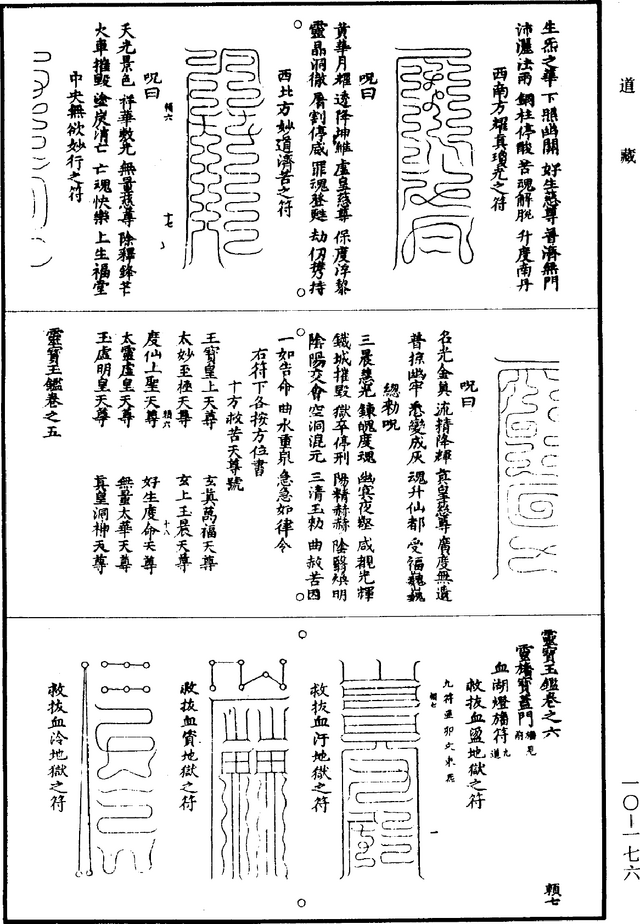 道藏
生炁之華 下照幽關 好生慈尊 普濟無門
沛灑法雨 銅柱停酸 苦魂解脫 升度南丹
西南方耀真瓊光之符
呪曰
黃華月耀 透降坤維 虛皇慈尊 保度浮黎
靈晶洞徹 屠割停威 罪魂登甦 劫仞棲持
西北方妙道濟苦之符
呪曰
天光景色 祥華敷光 無量慈尊 除釋鋒芒
火車摧毀 塗炭消亡 亡魂快樂 上生福堂
中央無欲妙行之符
呪曰
名光金真 流精降輝 真皇慈尊 廣度無遺
普掠幽牢 悉變成灰 魂升仙都 受福巍巍
總勑呪
三晨慧光 鍊魄度魂 幽冥夜壑 咸覩光輝
鐵城摧毀 獄卒停刑 陽精赫赫 陰翳煥明
陰陽交會 空洞混元 三清玉勑 曲赦苦因
一如告命 曲水重泉 急急如律令
右符下各按方位書
十方救苦天尊號
玉寶皇上天尊 玄真萬福天尊
太妙至極天尊 玄上玉晨天尊
度仙上聖天尊 好生度命天尊
太靈虛皇天尊 無量太華天尊
玉虛明皇天尊 真皇洞神天尊
靈寶玉鑑卷之五
靈寶玉鑑卷之六
靈旛寶蓋門
血湖燈旛符九道
救拔血盆地獄之符
救拔血汙地獄之符
救拔血資地獄之符
救拔血冷地獄之符
一〇—一七六